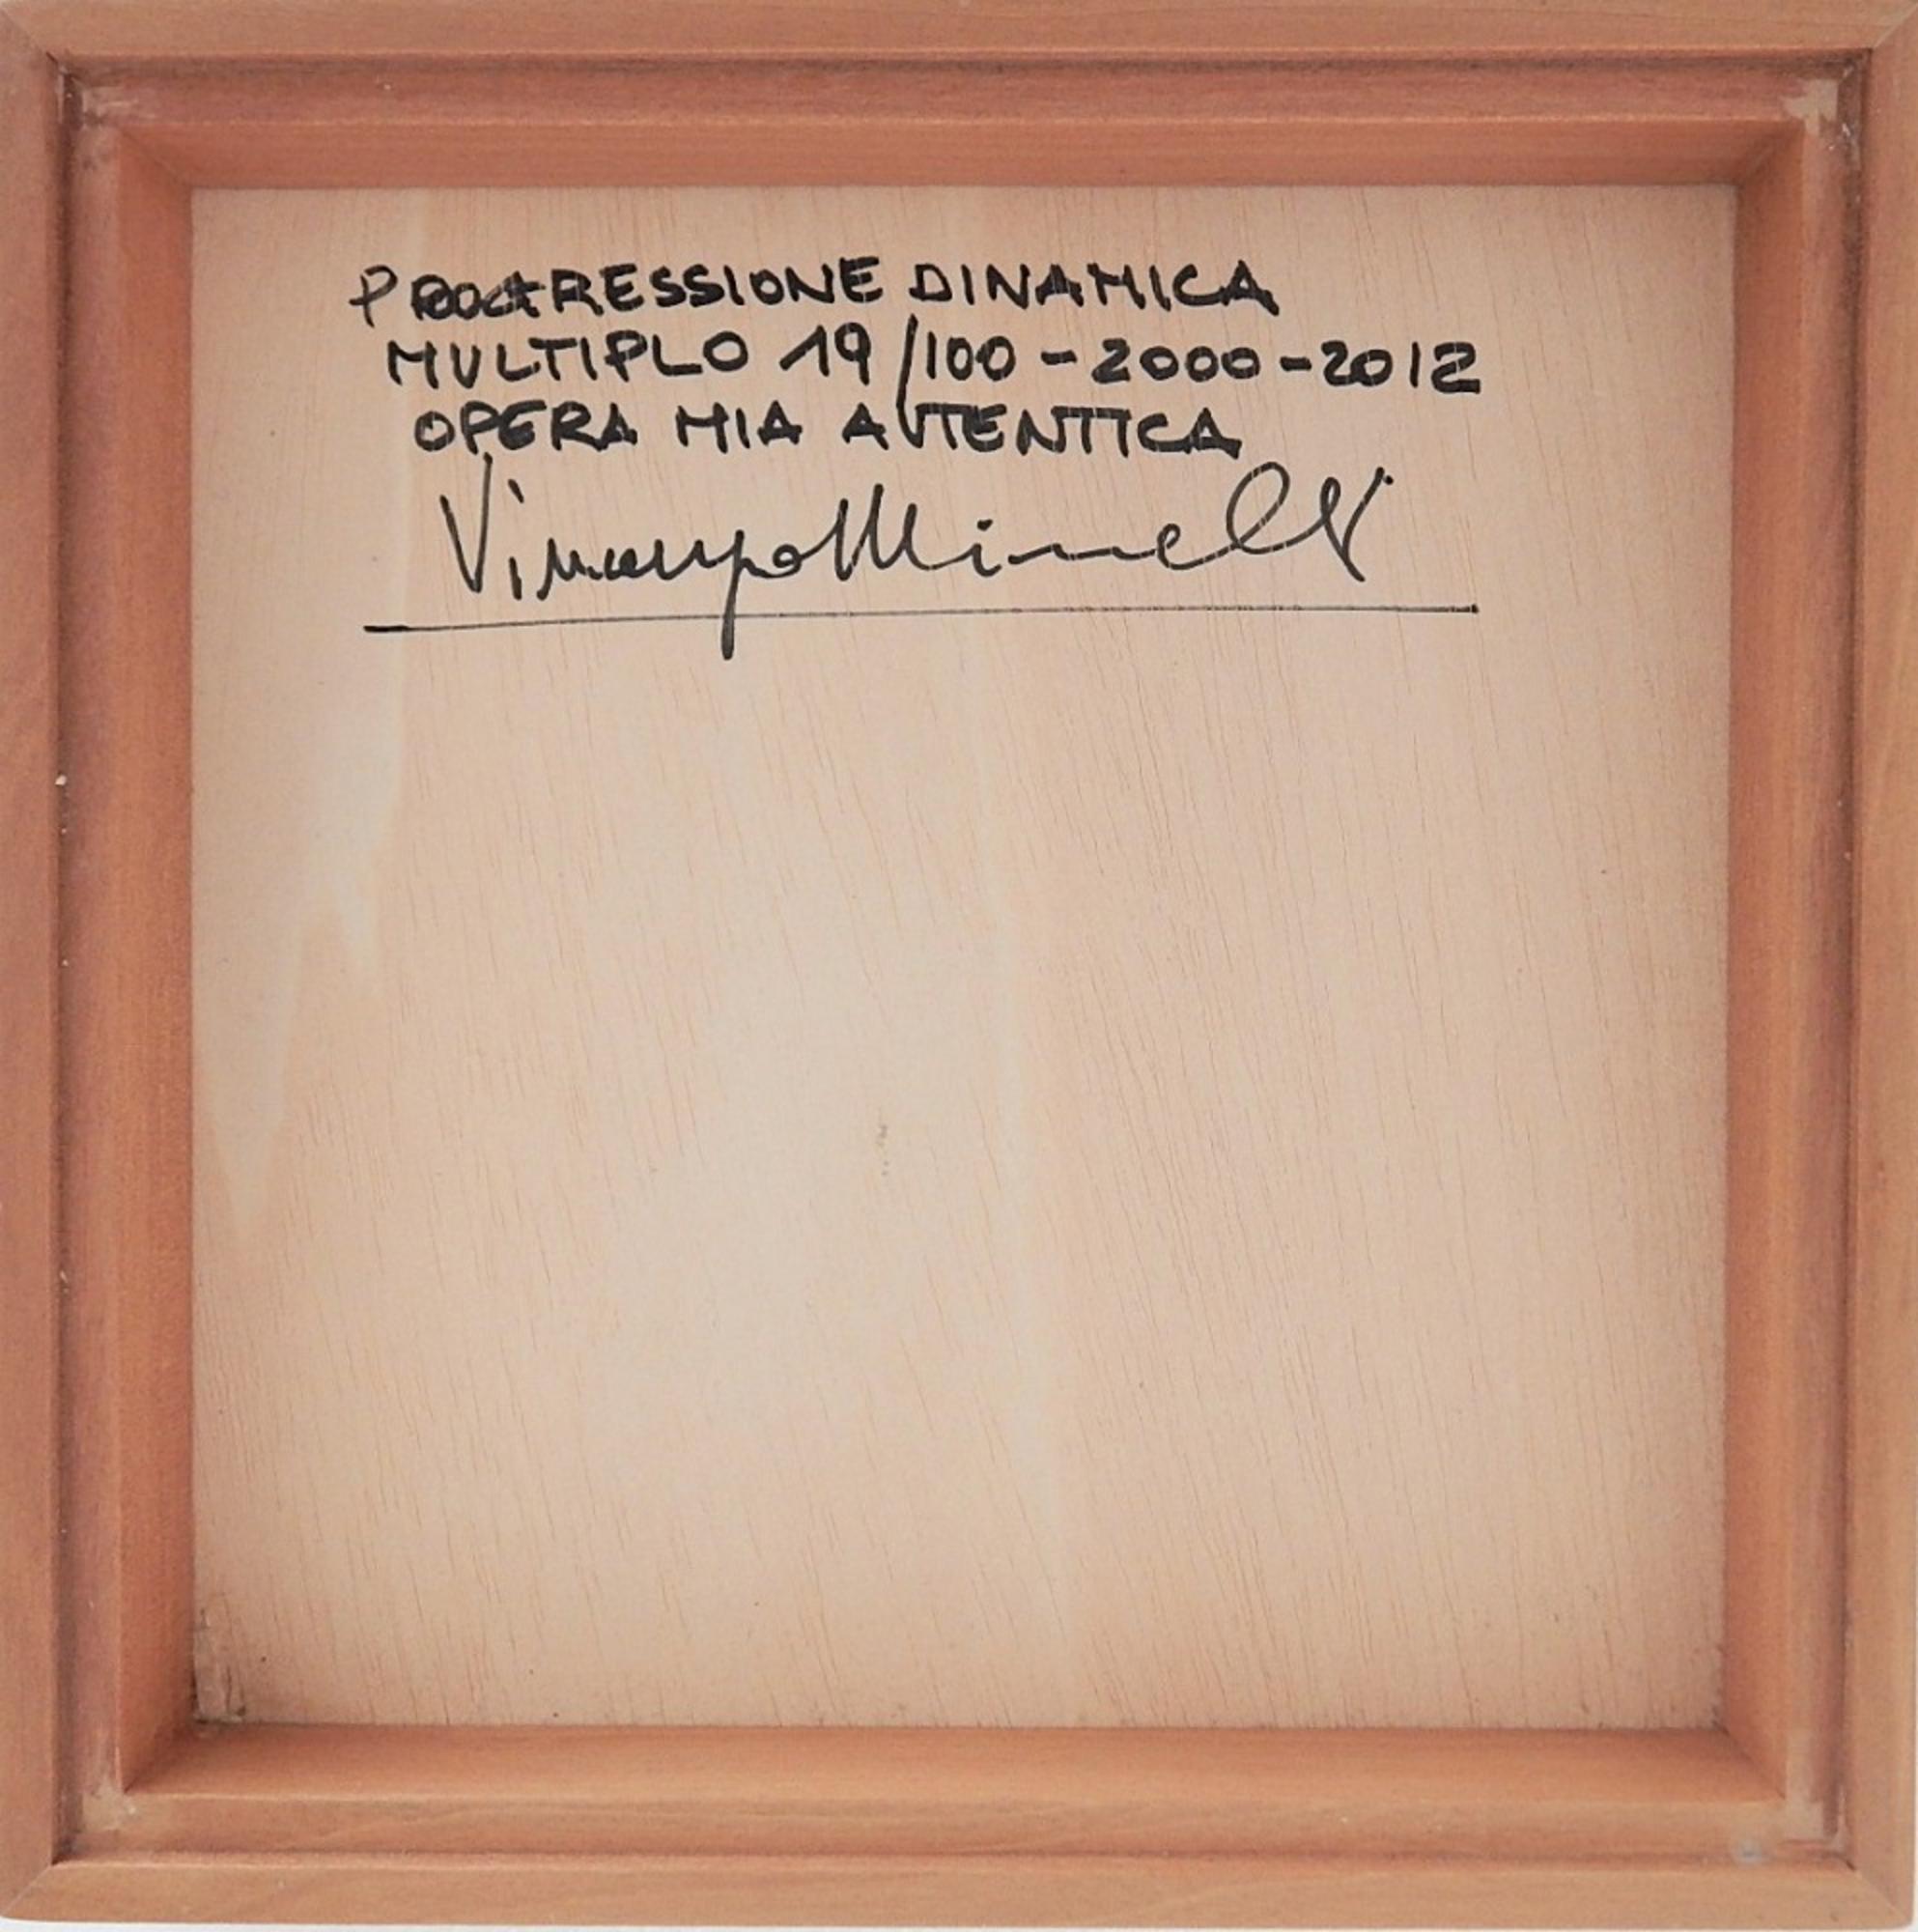 PROGRESSIONE DINAMICA
MULTIPLO 19/100 - 2000 - 2012
OPERA MIA AUTENTICA